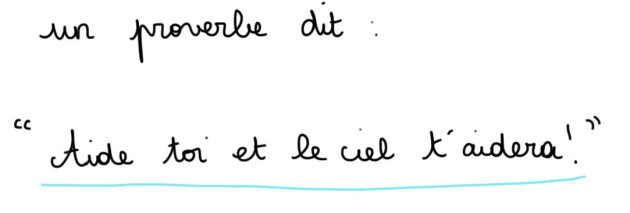 un proverbe dit :
“ Aide toi et le ciel t'aidera! ”